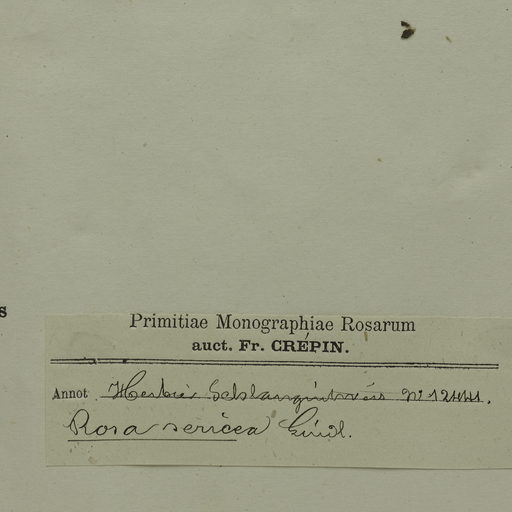 s
Primitiae Monographiae Rosarum
auct. Fr. CRÉPIN.
Annot Herbier Schlangintweis n° 12441.
Rosa sericea Lindl.